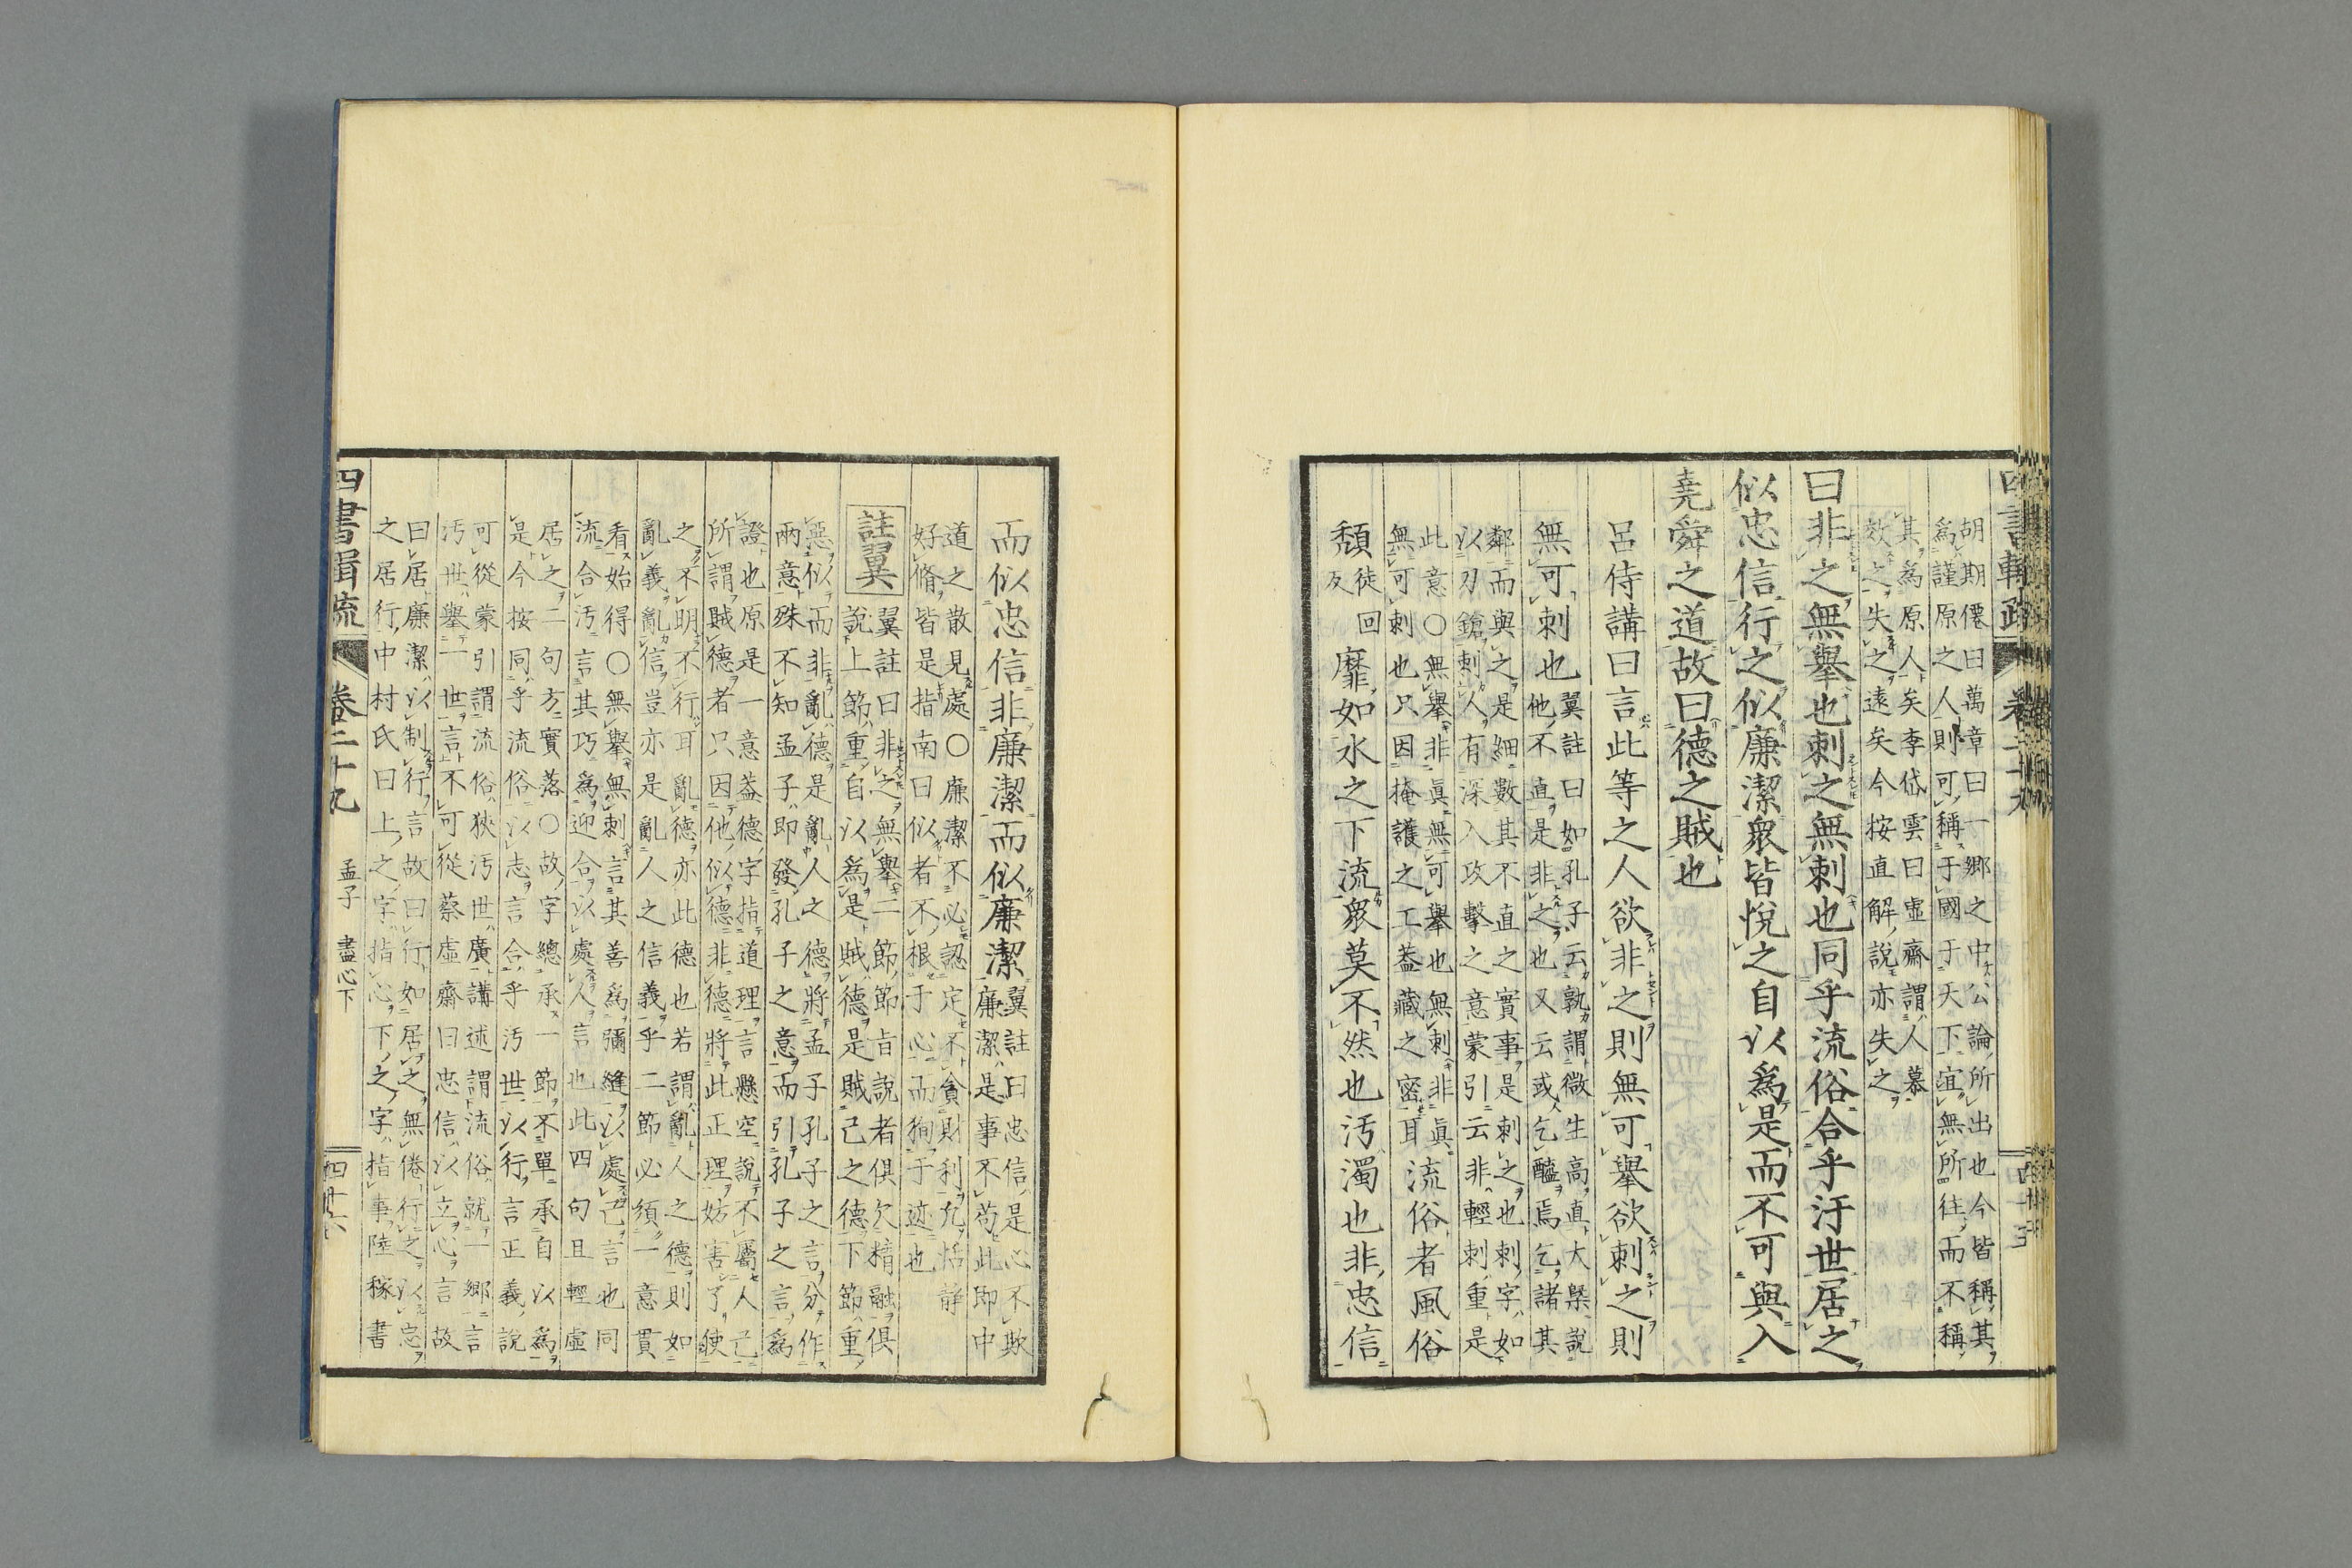 胡期僊曰萬章曰一鄕之中公論所出也今皆稱其
爲謹原之人則可稱于國于天下宜無所往而不稱
其爲原人矣李岱雲曰虛齋謂人慕
效之失之遠矣今按直解說亦失之
曰非之無舉也刺之無刺也同乎流俗合乎汙世居之
似忠信行之似廉潔衆皆悅之自以爲是而不可與入
堯舜之道故曰德之賊也
呂侍講曰言此等之人欲非之則無可舉欲刺之則
無可刺也
翼註曰如孔子云孰謂微生高直大槩說
他不直是非之也又云或乞醯焉乞諸其
鄰而與之是細數其不直之實事是刺之也刺字如
以刃鎗刺人有深入攻擊之意蒙引云非輕刺重是
此意○無舉非眞無可舉也無刺非眞
無可刺也只因掩護之工蓋藏之密耳
流俗者風俗
頹
徒回
反
靡如水之下流衆莫不然也汚濁也非忠信
而似忠信非廉潔而似廉潔
翼註曰忠信是心不欺
廉潔是事不苟此即中
道之散見處○廉潔不必認定不貪財利凡恬靜
好脩皆是指南曰似者不根于心而狥于迹也
註翼
翼註曰非之無舉二節節旨說者俱欠精融俱
說上節重自以爲是賊德是賊己之德下節重
惡似而非亂德是亂人之德將孟子孔子之言分作
兩意殊不知孟子即發孔子之意而引孔子之言爲
證也原是一意蓋德字指道理言懸空說不屬人己
所謂賊德者只因他似德非德將此正理妨害了使
之不明不行耳亂德亦此德也若謂亂人之德則如
亂義亂信豈亦是亂人之信義乎二節必須一意貫
看始得○無舉無刺言其善爲彌縫以處己言也同
流合汚言其巧爲迎合以處人言也此四句且輕虛
居之二句方實落○故字總承一節不單承自以爲
是今按同乎流俗以志言合乎汚世以行言正義說
可從蒙引謂流俗狹汚世廣講述謂流俗就一鄕言
汚世舉一世言不可從蔡虛齋曰忠信以立心言故
曰居廉潔以制行言故曰行如居之無倦行之以忠
之居行中村氏曰上之字指心下之字指事陸稼書
四書輯疏
卷二十九
孟子 盡心下